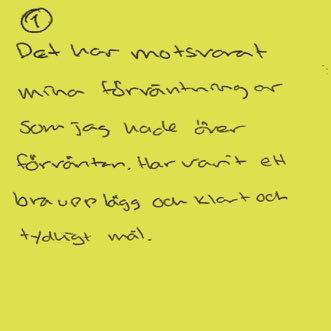 1
Det har motsvarat
mina förväntningar
som jag hade över
förväntan. Har varit ett
bra upplägg och klart och
tydligt mål.